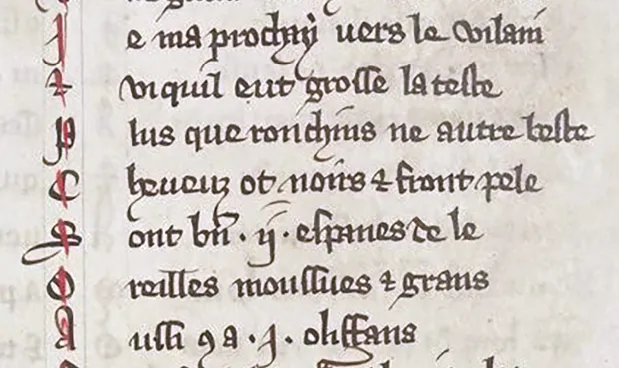 J e ma prochay vers le vilain
⁊ vi quil eut grosse la teste
p lus que ronchins ne autre beste
C heueuz ot noirs ⁊ front pele
S ont bn̄ · ij · espanes de le
O reilles moussues ⁊ grans
a ussi ꝯ a · j · oliffans